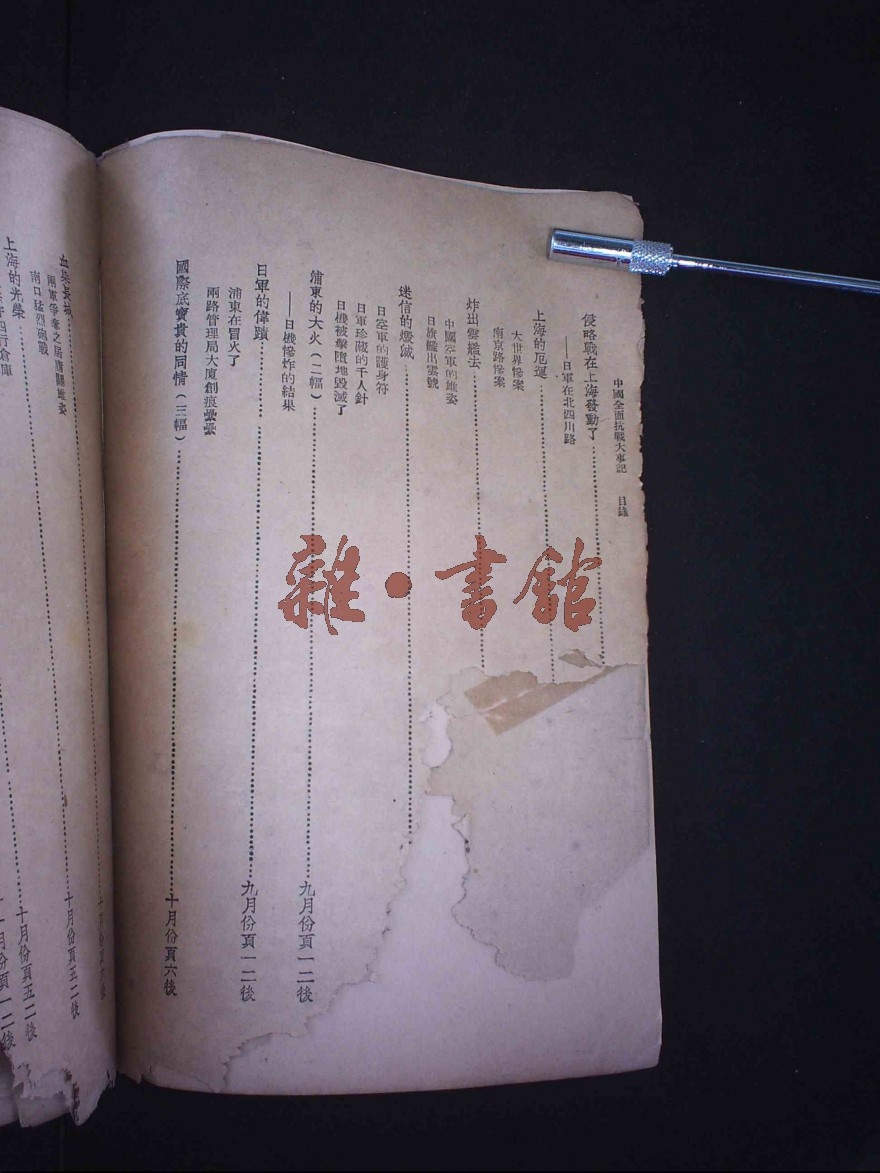 中國全面抗戰大事記　目錄
侵略戰在上海發動了
——日軍在北四川路
上海的厄運
大世界慘案
南京路慘案
炸出雲艦去
中國空軍的雄姿
日旗艦出雲號
迷信的燬滅
日空軍的護身符
日軍珍藏的千人針
日機被擊墮地毀滅了
浦東的大火（二幅）⋯⋯九月份頁一二後
——日機慘炸的結果
日軍的偉蹟⋯⋯九月份頁一二後
浦東在冒火了
兩路管理局大廈創痕纍纍
國際底寶貴的同情（三幅）⋯⋯十月份頁六後
十月份頁六後
血染長城⋯⋯十月份頁五二後
兩軍爭奪之居庸關雄姿
南口猛烈砲戰
⋯⋯十月份頁五二後
上海的光榮
四行倉庫
月份頁一二後
雜·書館